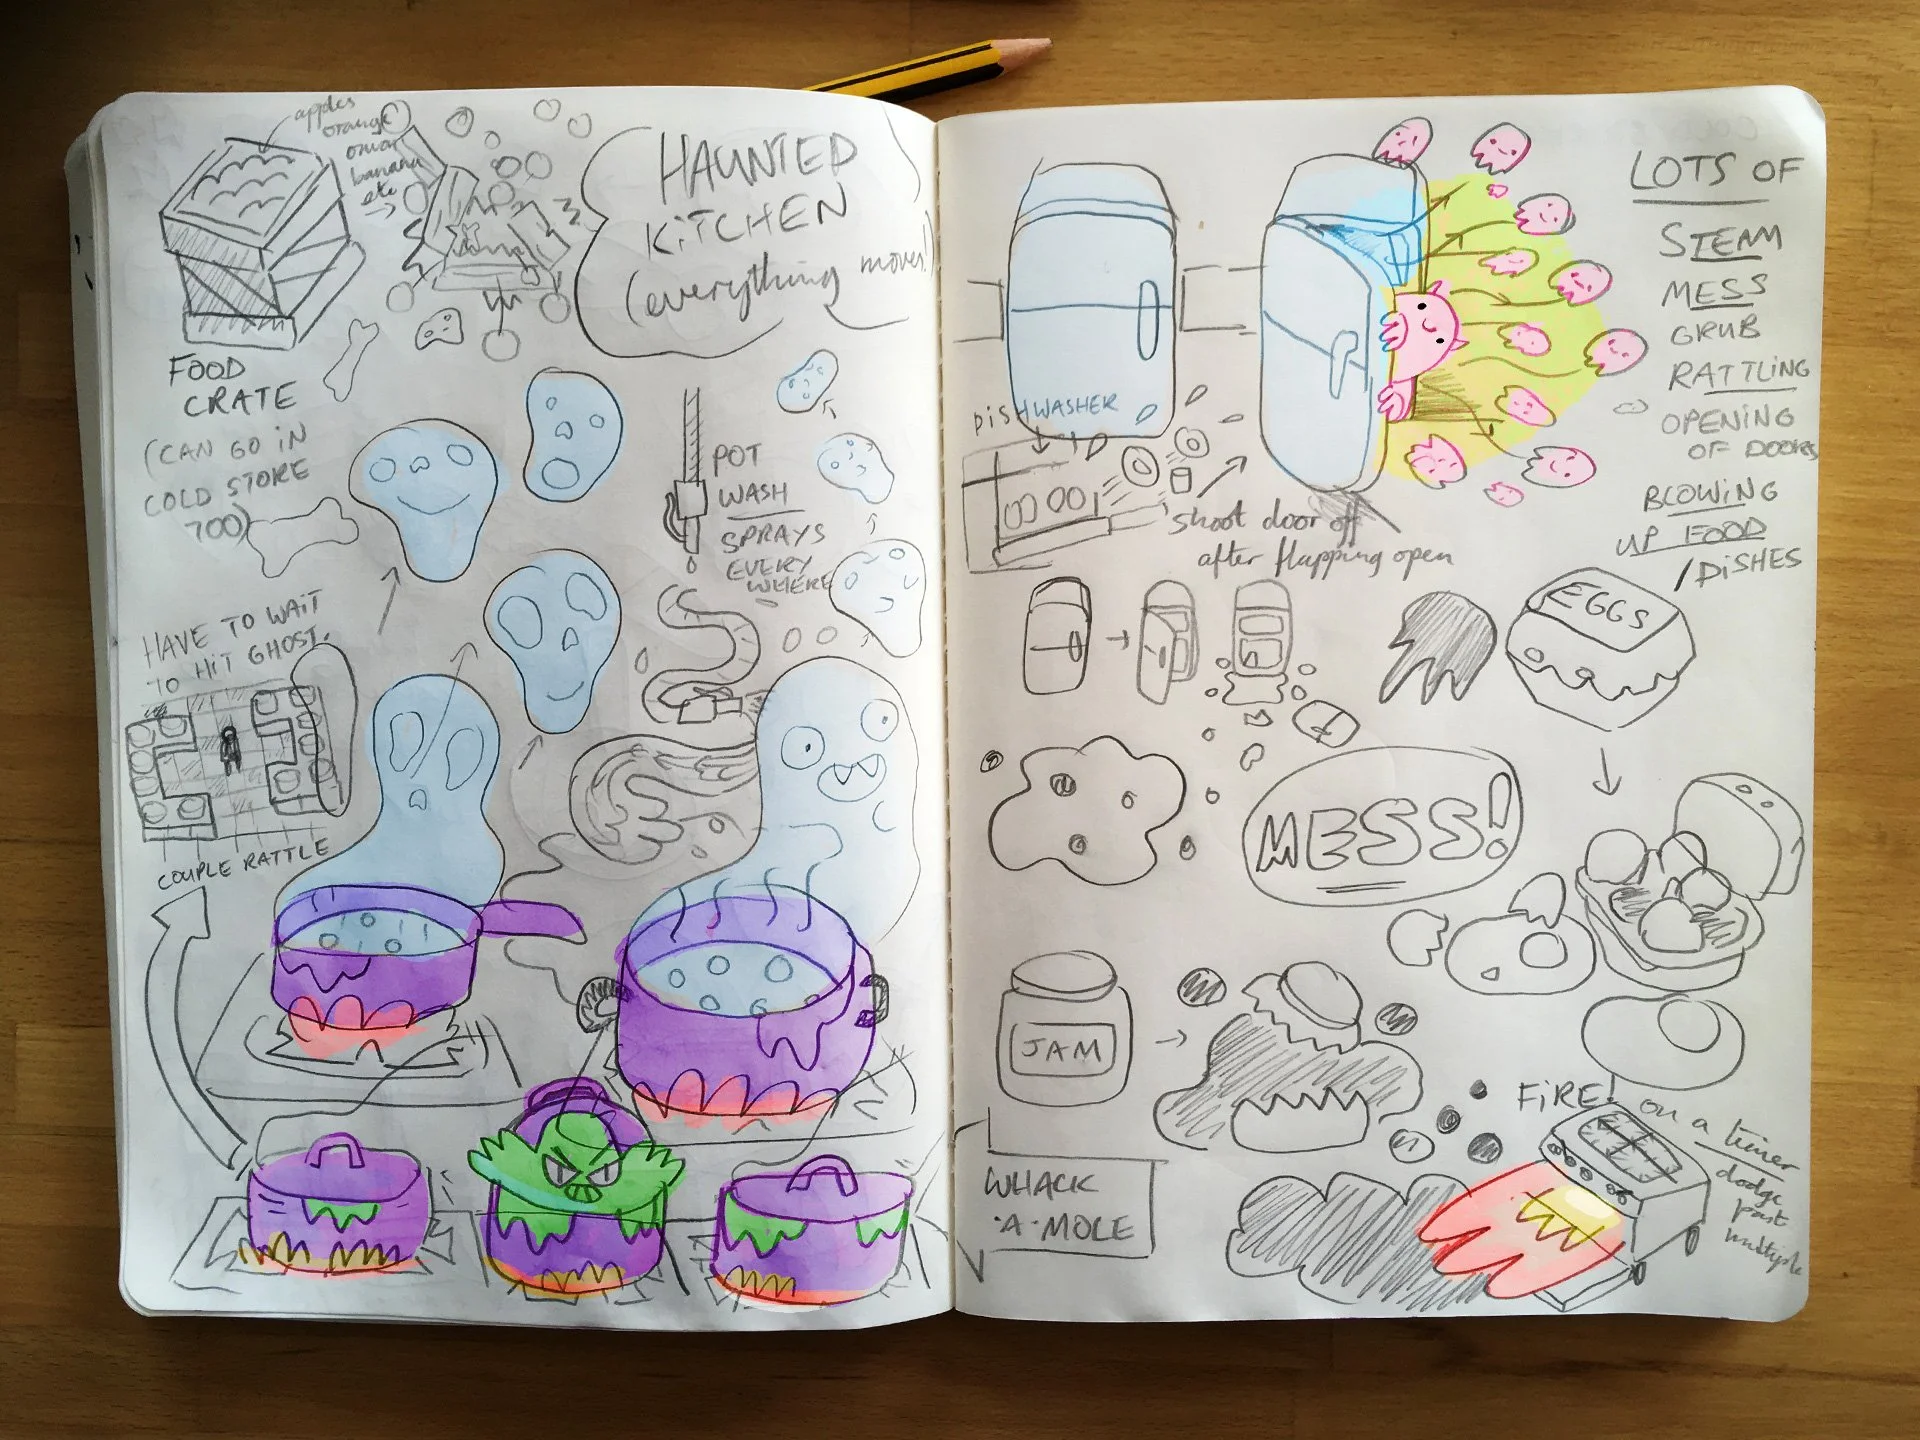 apples
orange
onion
banana
etc
HAUNTED
KITCHEN
(everything moves!)
FOOD
CRATE
(CAN GO IN
COLD STORE
TOO)
POT
WASH
SPRAYS
EVERY
WHERE
HAVE TO WAIT
TO HIT GHOST.
COUPLE RATTLE
LOTS OF
STEAM
MESS
GRUB
RATTLING
OPENING
OF DOORS
BLOWING
UP FOOD
/DISHES
DISHWASHER
shoot door off
after flapping open
EGGS
MESS!
JAM
WHACK
·A·MOLE
FIRE!
on a timer
dodge
past
multiple